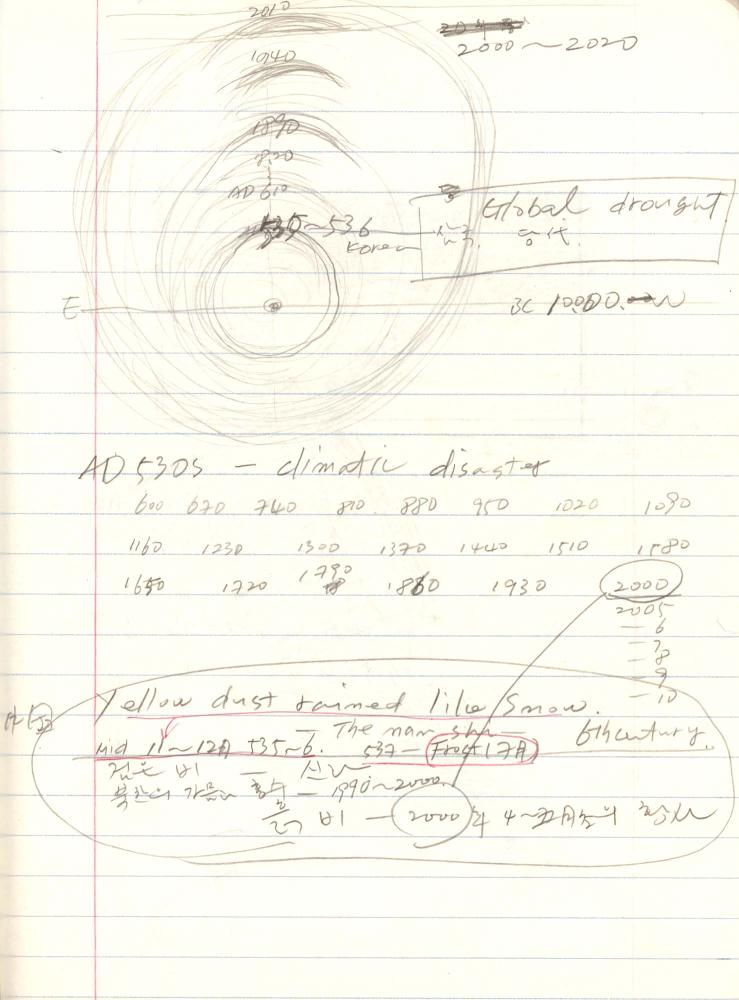 2010
2000~2020
1940
1890
820
AD 610
Global drought
535~536
Korean
E
BC 10,000.
AD 530s - climatic disaster
600 670 740 810 880 950 1020 1090
1160 1230 1300 1370 1440 1510 1580
1650 1720 1790 1860 1930 2000
2005
- 6
- 7
- 8
- 9
- 10
Yellow dust rained like snow.
- The nan shi - 6th century.
mid 11~12月 535~6. 537 - Frost (7月)
검은 비 - 신라
북한의 가뭄과 홍수 - 1990~2000.
흙 비 - 2000年 4~5月초의 황사